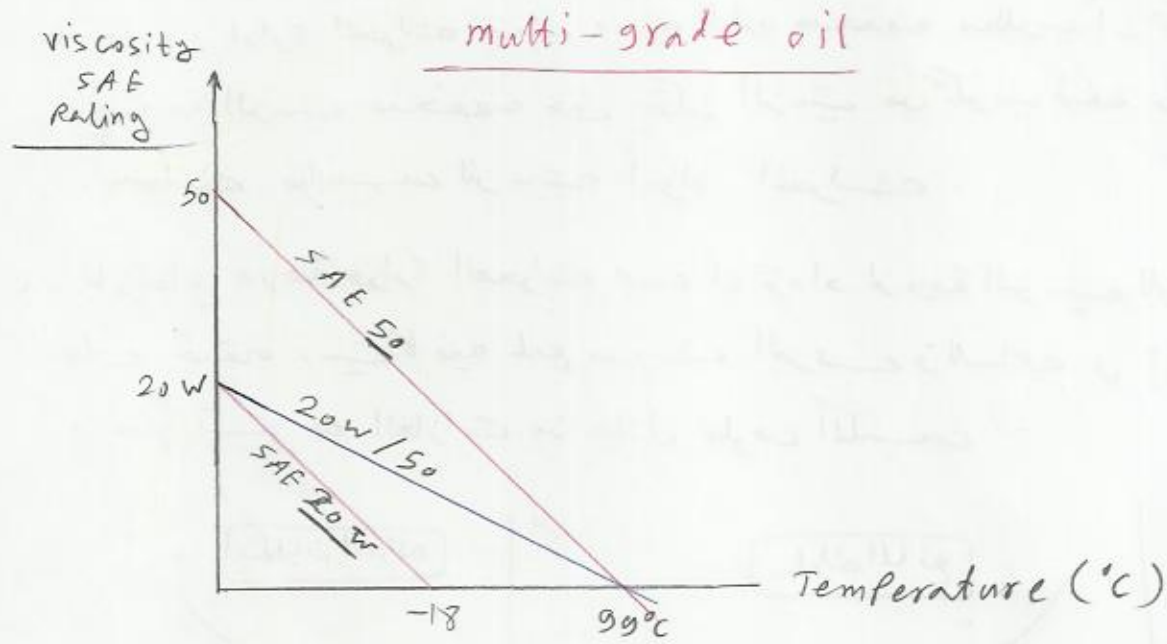 multi-grade oil
viscosity
SAE
Rating
50
SAE 50
20 W
20W/50
SAE 20W
-18
99°C
Temperature (°C)